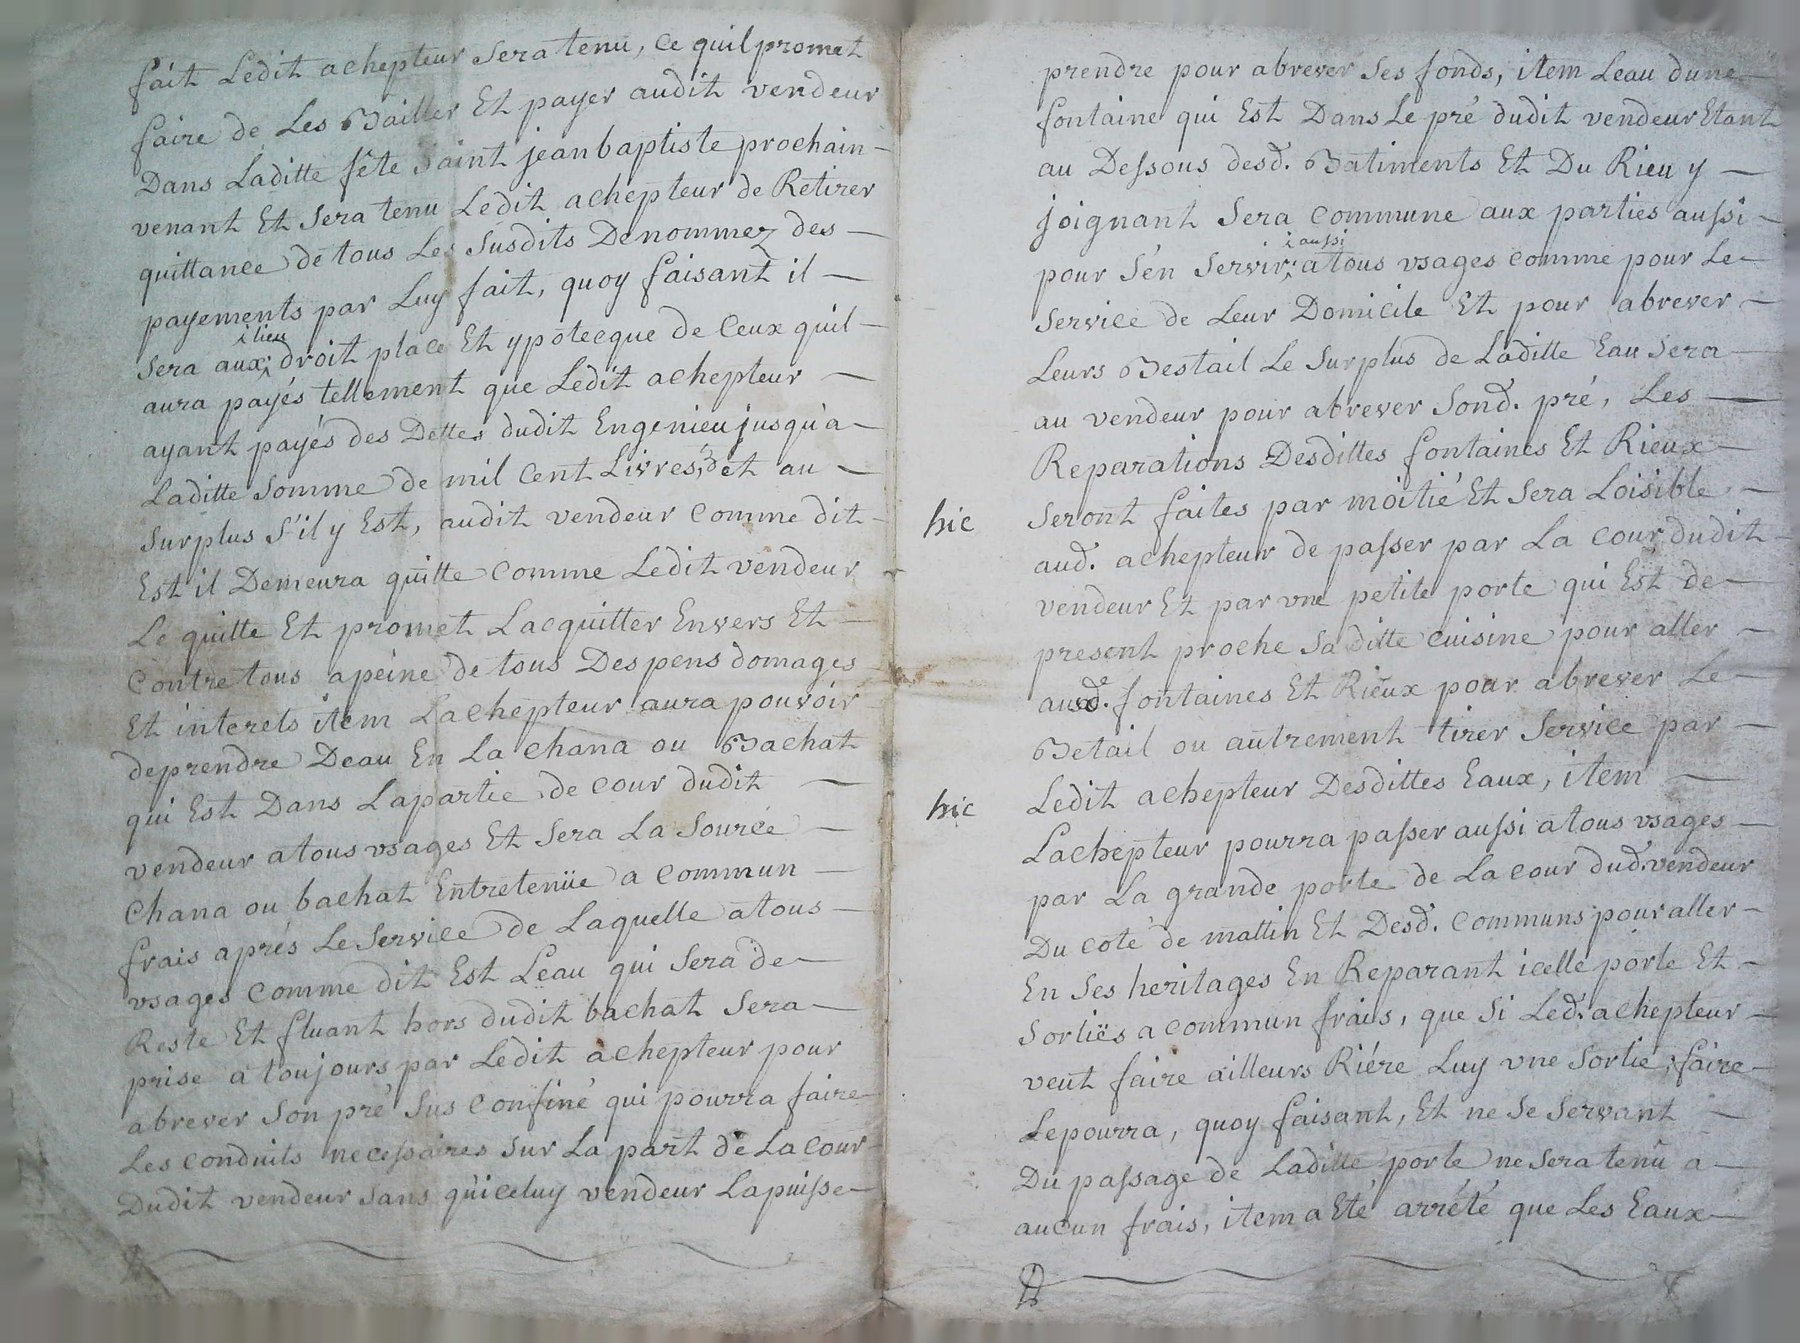 fait Ledit achepteur sera tenu, ce quil promet
faire de Les Bailler Et payer audit vendeur
Dans Laditte fête saint jean baptiste prochain
venant Et sera tenu Ledit achepteur de Retirer
quittance de tous Les susdits Denommez des
payements par Luy fait, quoy faisant il
i lieu
sera aux droit place Et ypotecque de ceux quil
aura payés tellement que Ledit achepteur
ayant payés des Dettes dudit Engenieu jusqu'a
Laditte somme de mil cent Livres, et au
surplus s'il y Est, audit vendeur comme dit
Est il Demeura quitte comme Ledit vendeur
Le quitte Et promet Lacquitter Envers Et
contre tous a peine de tous Despens domages
Et interets item Lachepteur aura pouvoir
de prendre Deau En La chana ou Bachat
qui Est Dans La partie de cour dudit
vendeur a tous vsages Et sera La source
chana ou bachat Entretenüe a commun
frais aprés Le service de Laquelle a tous
vsages comme dit Est Leau qui sera de
Reste Et fluant hors dudit bachat sera
prise a toujours par Ledit achepteur pour
abrever son pré sus confiné qui pourra faire
Les conduits necessaires sur La part de La cour
Dudit vendeur sans qu'iceluy vendeur La puisse
prendre pour abrever ses fonds, item Leau dune
fontaine qui Est Dans Le pré dudit vendeur Etant
au Dessous desd. Batiments Et Du Rieu y
joignant sera commune aux parties aussi
i aussi
pour s'en servir a tous vsages comme pour Le
service de Leur Domicile Et pour abrever
Leurs Bestail Le surplus de Laditte Eau sera
au vendeur pour abrever sond. pré, Les
Reparations Desdittes fontaines Et Rieux
hic seront faites par moitié Et sera Loisible
aud. achepteur de passer par La cour dudit
vendeur Et par vne petite porte qui Est de
present proche sa ditte cuisine pour aller
auxd. fontaines Et Rieux pour abrever Le
Betail ou autrement tirer service par
hic Ledit achepteur Desdittes Eaux, item
Lachepteur pourra passer aussi a tous vsages
par La grande porte de La cour dud. vendeur
Du coté de mattin Et Desd. communs pour aller
En ses heritages En Reparant icelle porte Et
sortiës a commun frais, que si Led. achepteur
veut faire ailleurs Riére Luy vne sortie, faire
Le pourra, quoy faisant, Et ne se servant
Du passage de Laditte porte ne sera tenû a
aucun frais, item a Eté arrété que Les Eaux